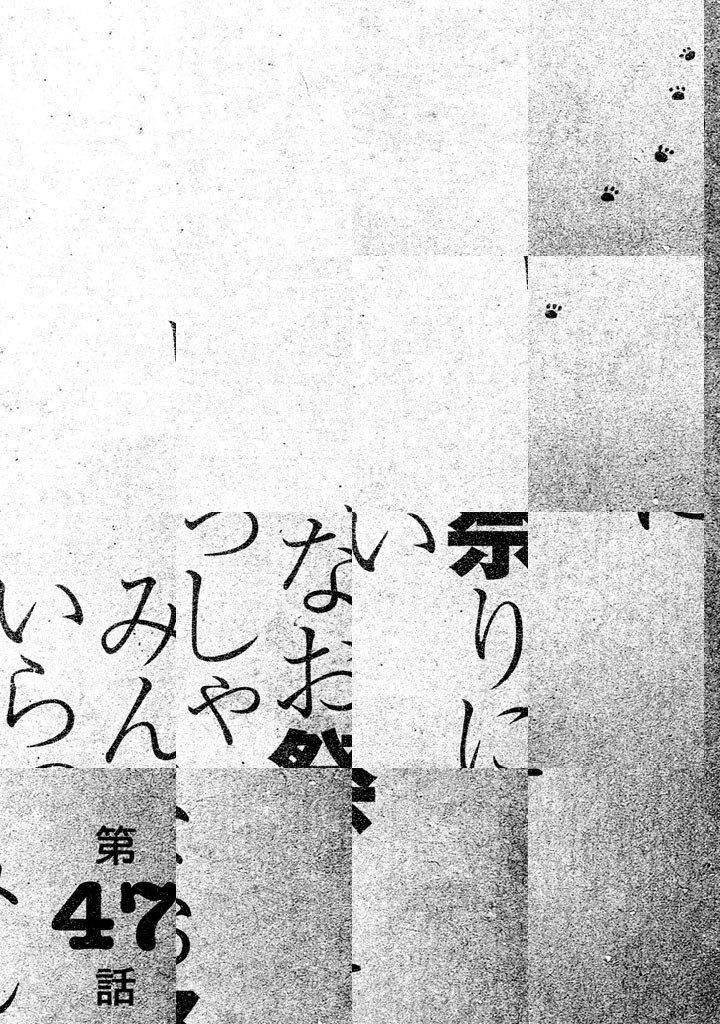 みんなお祭りに
いらっしゃい
第47話